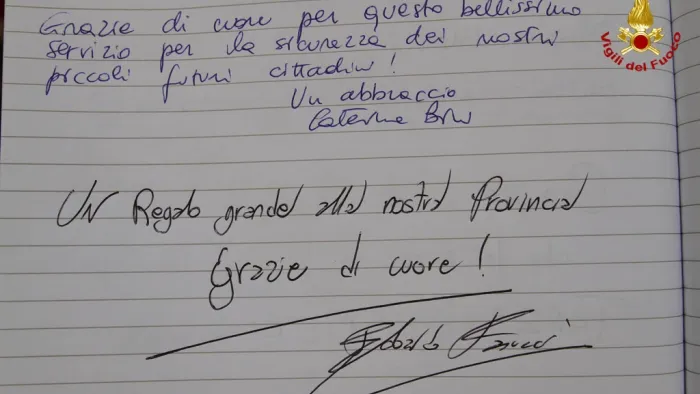 Grazie di cuore per questo bellissimo
servizio per la sicurezza dei nostri
piccoli futuri cittadini!
Un abbraccio
Caterina
Un Regalo grande alla nostra Provincia
Grazie di cuore!
Vigili del Fuoco